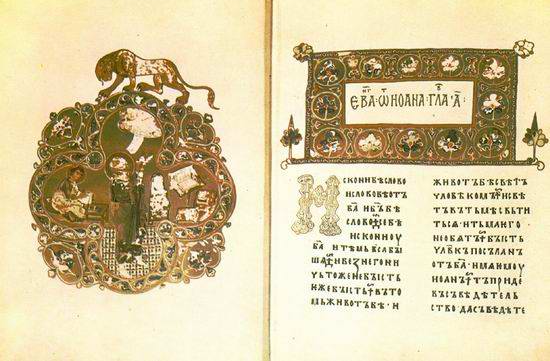 ЕВА ѠТ ИОАНА ГЛА А҃
Искони бѣ слово
и слово бѣ отъ
б҃а и б҃ъ бѣ
слово се бѣ
искони оу
б҃а и тѣмь вьса бꙑ
шѧ и без него ни
чьтоже не бꙑсть
еже бꙑсть въ то
мь животъ бѣ и
животъ бѣ свѣтъ
чловѣкомъ и свѣ
тъ въ тьмѣ свьти
тьсѧ и тьма ѥго
не обѧтъ бꙑсть
чл҃вкъ посъланъ
отъ б҃а имѧ ѥмоу
иоанъ тъ приде
въ съвѣдѣтель
ство да съвѣдѣте